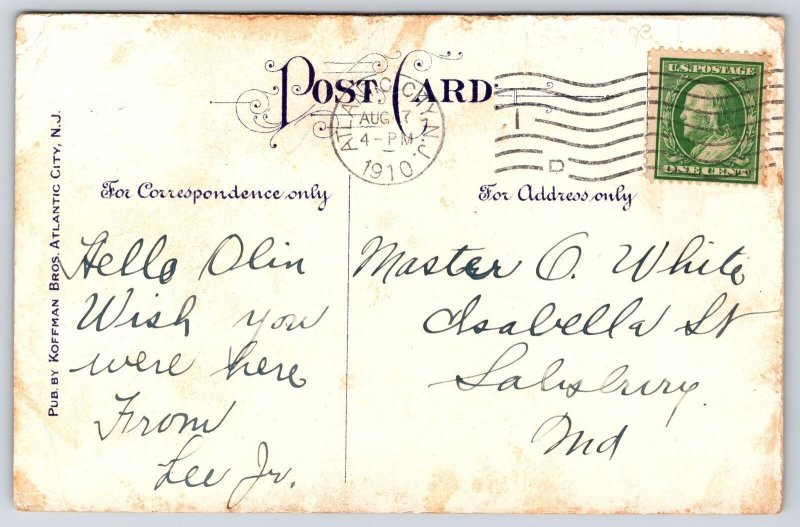 POST CARD
ATLANTIC CITY, N.J.
AUG 7
4-PM
1910
D
U.S. POSTAGE
ONE CENT
PUB. BY KOFFMAN BROS. ATLANTIC CITY, N.J.
For Correspondence only
Hello Olin
Wish you
were here
From
Lee Jr.
For Address only
Master O. White
Isabella St
Salisbury
Md